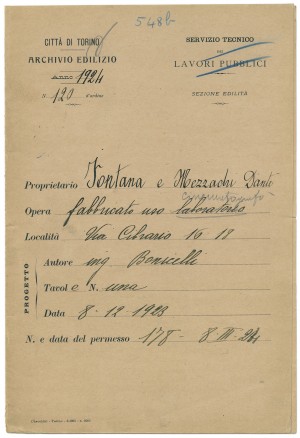 548b
CITTÀ DI TORINO
ARCHIVIO EDILIZIO
ANNO 1924
N. 120 d'ordine
SERVIZIO TECNICO
DEI
LAVORI PUBBLICI
SEZIONE EDILITÀ
Proprietario Fontana e Mezzadri Dante
Opera fabbricato uso laboratorio
Località Via Cibrario 16 18
PROGETTO
Autore ing Bonicelli
Tavole N. una
Data 8-12-1923
N. e data del permesso 178 - 8-III-24